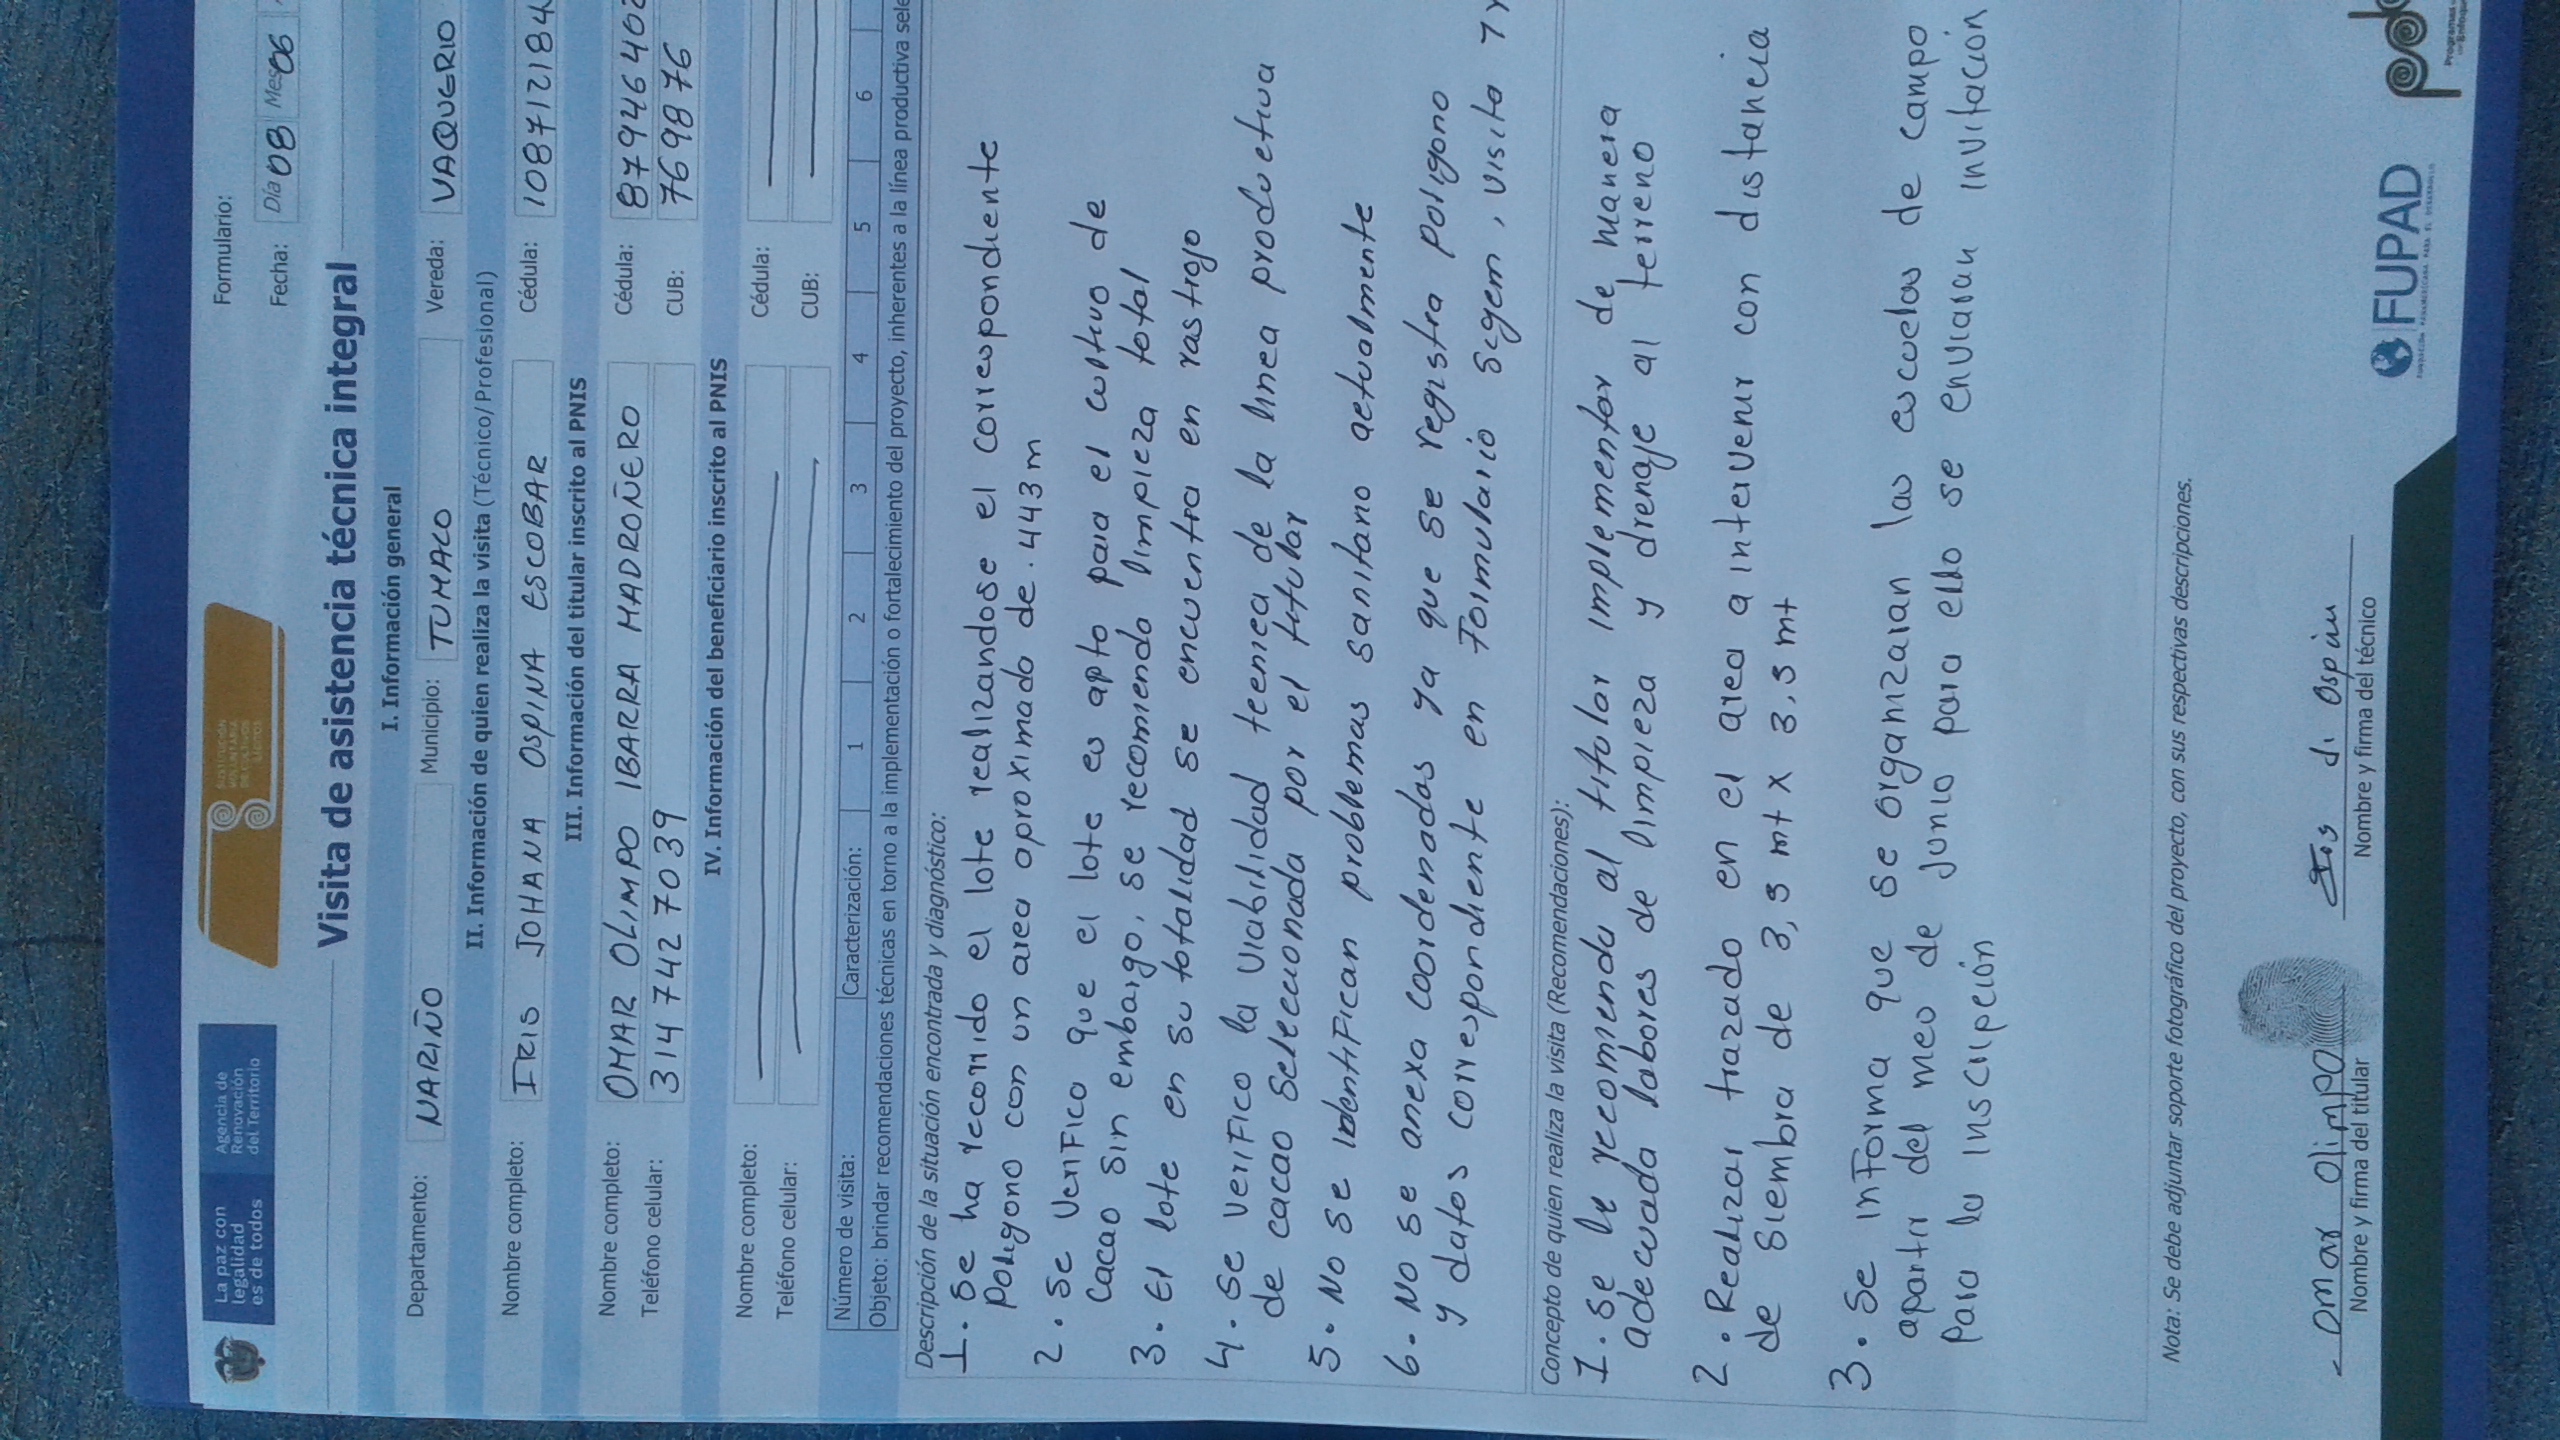 La paz con
legalidad
es de todos
Agencia de
Renovación
del Territorio
SUSTITUCIÓN
VOLUNTARIA
DE CULTIVOS
ILÍCITOS
Formulario:
Fecha: Día 08 Mes 06
Visita de asistencia técnica integral
I. Información general
Departamento: NARIÑO Municipio: TUMACO Vereda: VAQUERIO
II. Información de quien realiza la visita (Técnico/Profesional)
Nombre completo: IRIS JOHANA OSPINA ESCOBAR Cédula: 108712184
III. Información del titular inscrito al PNIS
Nombre completo: OMAR OLIMPO IBARRA MADROÑERO Cédula: 87946402
Teléfono celular: 314 742 7039 CUB: 7698876
IV. Información del beneficiario inscrito al PNIS
Nombre completo: Cédula:
Teléfono celular: CUB:
Número de visita: Caracterización: 1 2 3 4 5 6
Objeto: brindar recomendaciones técnicas en torno a la implementación o fortalecimiento del proyecto, inherentes a la línea productiva sele
Descripción de la situación encontrada y diagnóstico:
1. Se ha recorrido el lote realizandose el correspondiente
Poligono con un area aproximada de. 443 m
2. Se Verifico que el lote es apto para el cultivo de
Cacao sin embargo, se recomienda limpieza total
3. El lote en su totalidad se encuentra en rastrojo
4. Se Verifico la Viabilidad tecnica de la linea productiva
de cacao Seleccionada por el titular
5. No se identifican problemas sanitario actualmente
6. No se anexa coordenadas ya que se registra Poligono
y datos correspondiente en Formulario Sigem, visita 7
Concepto de quien realiza la visita (Recomendaciones):
1. Se le recomienda al titular implementar de manera
adecuada labores de limpieza y drenaje al terreno
2. Realizar trazado en el area a intervenir con distancia
de Siembra de 3,5 mt x 3,5 mt
3. Se informa que se organizaran las escuelas de campo
apartir del mes de Junio para ello se enviaran invitación
Para la inscripción
Nota: Se debe adjuntar soporte fotográfico del proyecto, con sus respectivas descripciones.
Omar Olimpo
Nombre y firma del titular
Iris J. Ospina
Nombre y firma del técnico
FUPAD
FUNDACIÓN PANAMERICANA PARA EL DESARROLLO